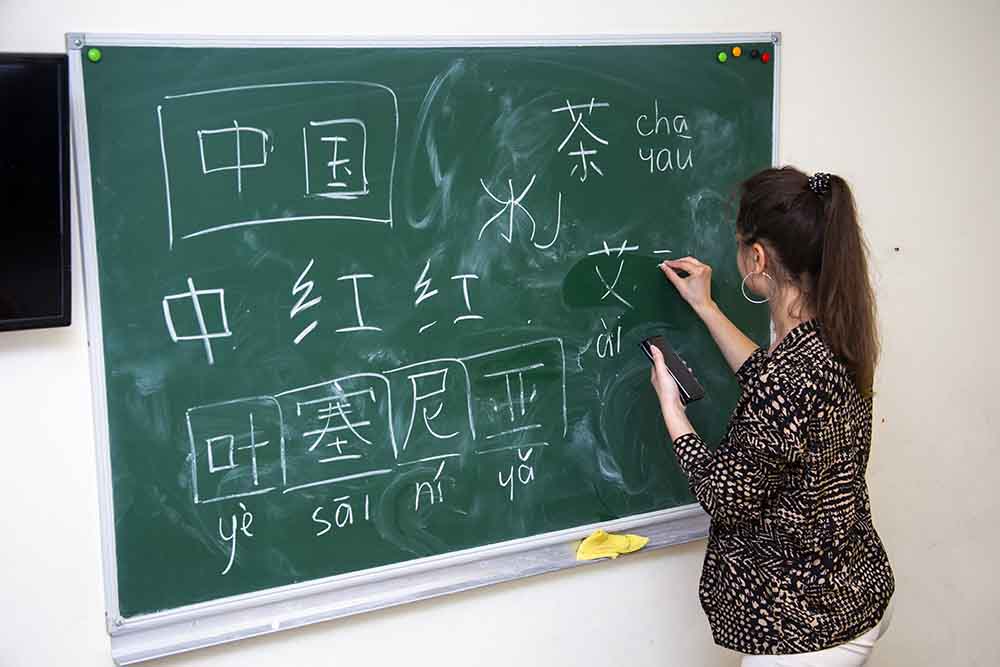 中国
茶 cha
чай
水
中 红 红
艾
ài
叶 塞 尼 亚
yè sāi ní yǎ